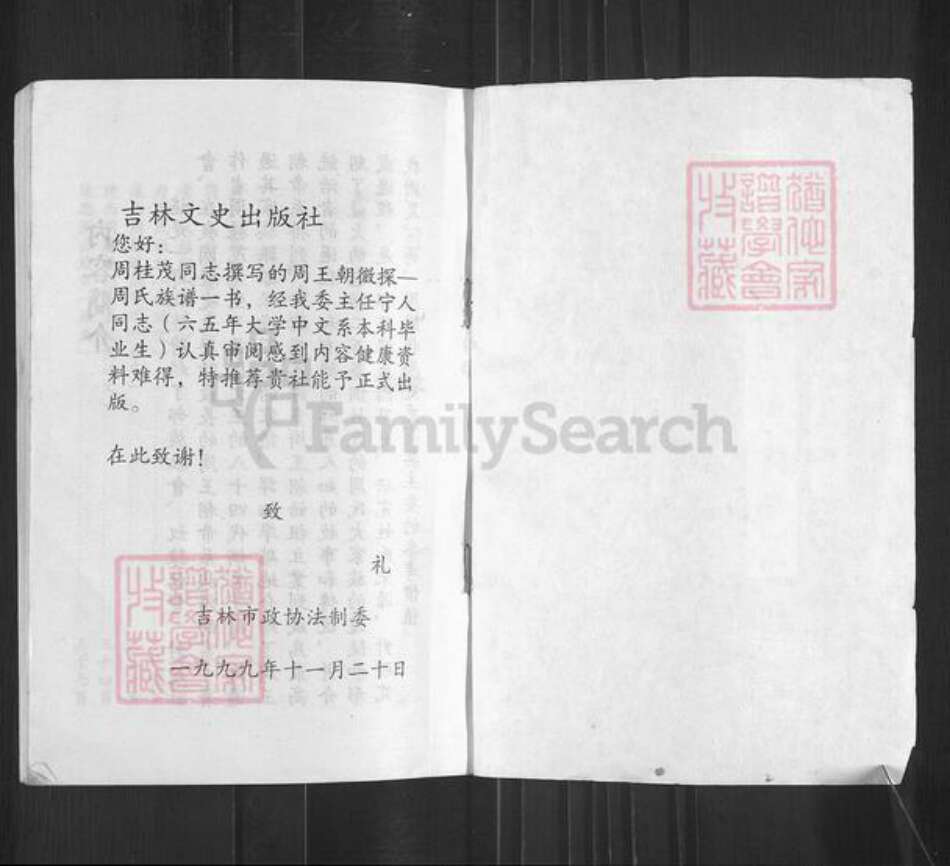 吉林文史出版社
您好：
周桂茂同志撰写的周王朝微探—
周氏族谱一书，经我委主任宁人
同志（六五年大学中文系本科毕
业生）认真审阅感到内容健康资
料难得，特推荐贵社能予正式出
版。
在此致谢！
致
礼
吉林市政协法制委
一九九九年十一月二十日
FamilySearch
猶他家
譜學會
收藏
猶他家
譜學會
收藏